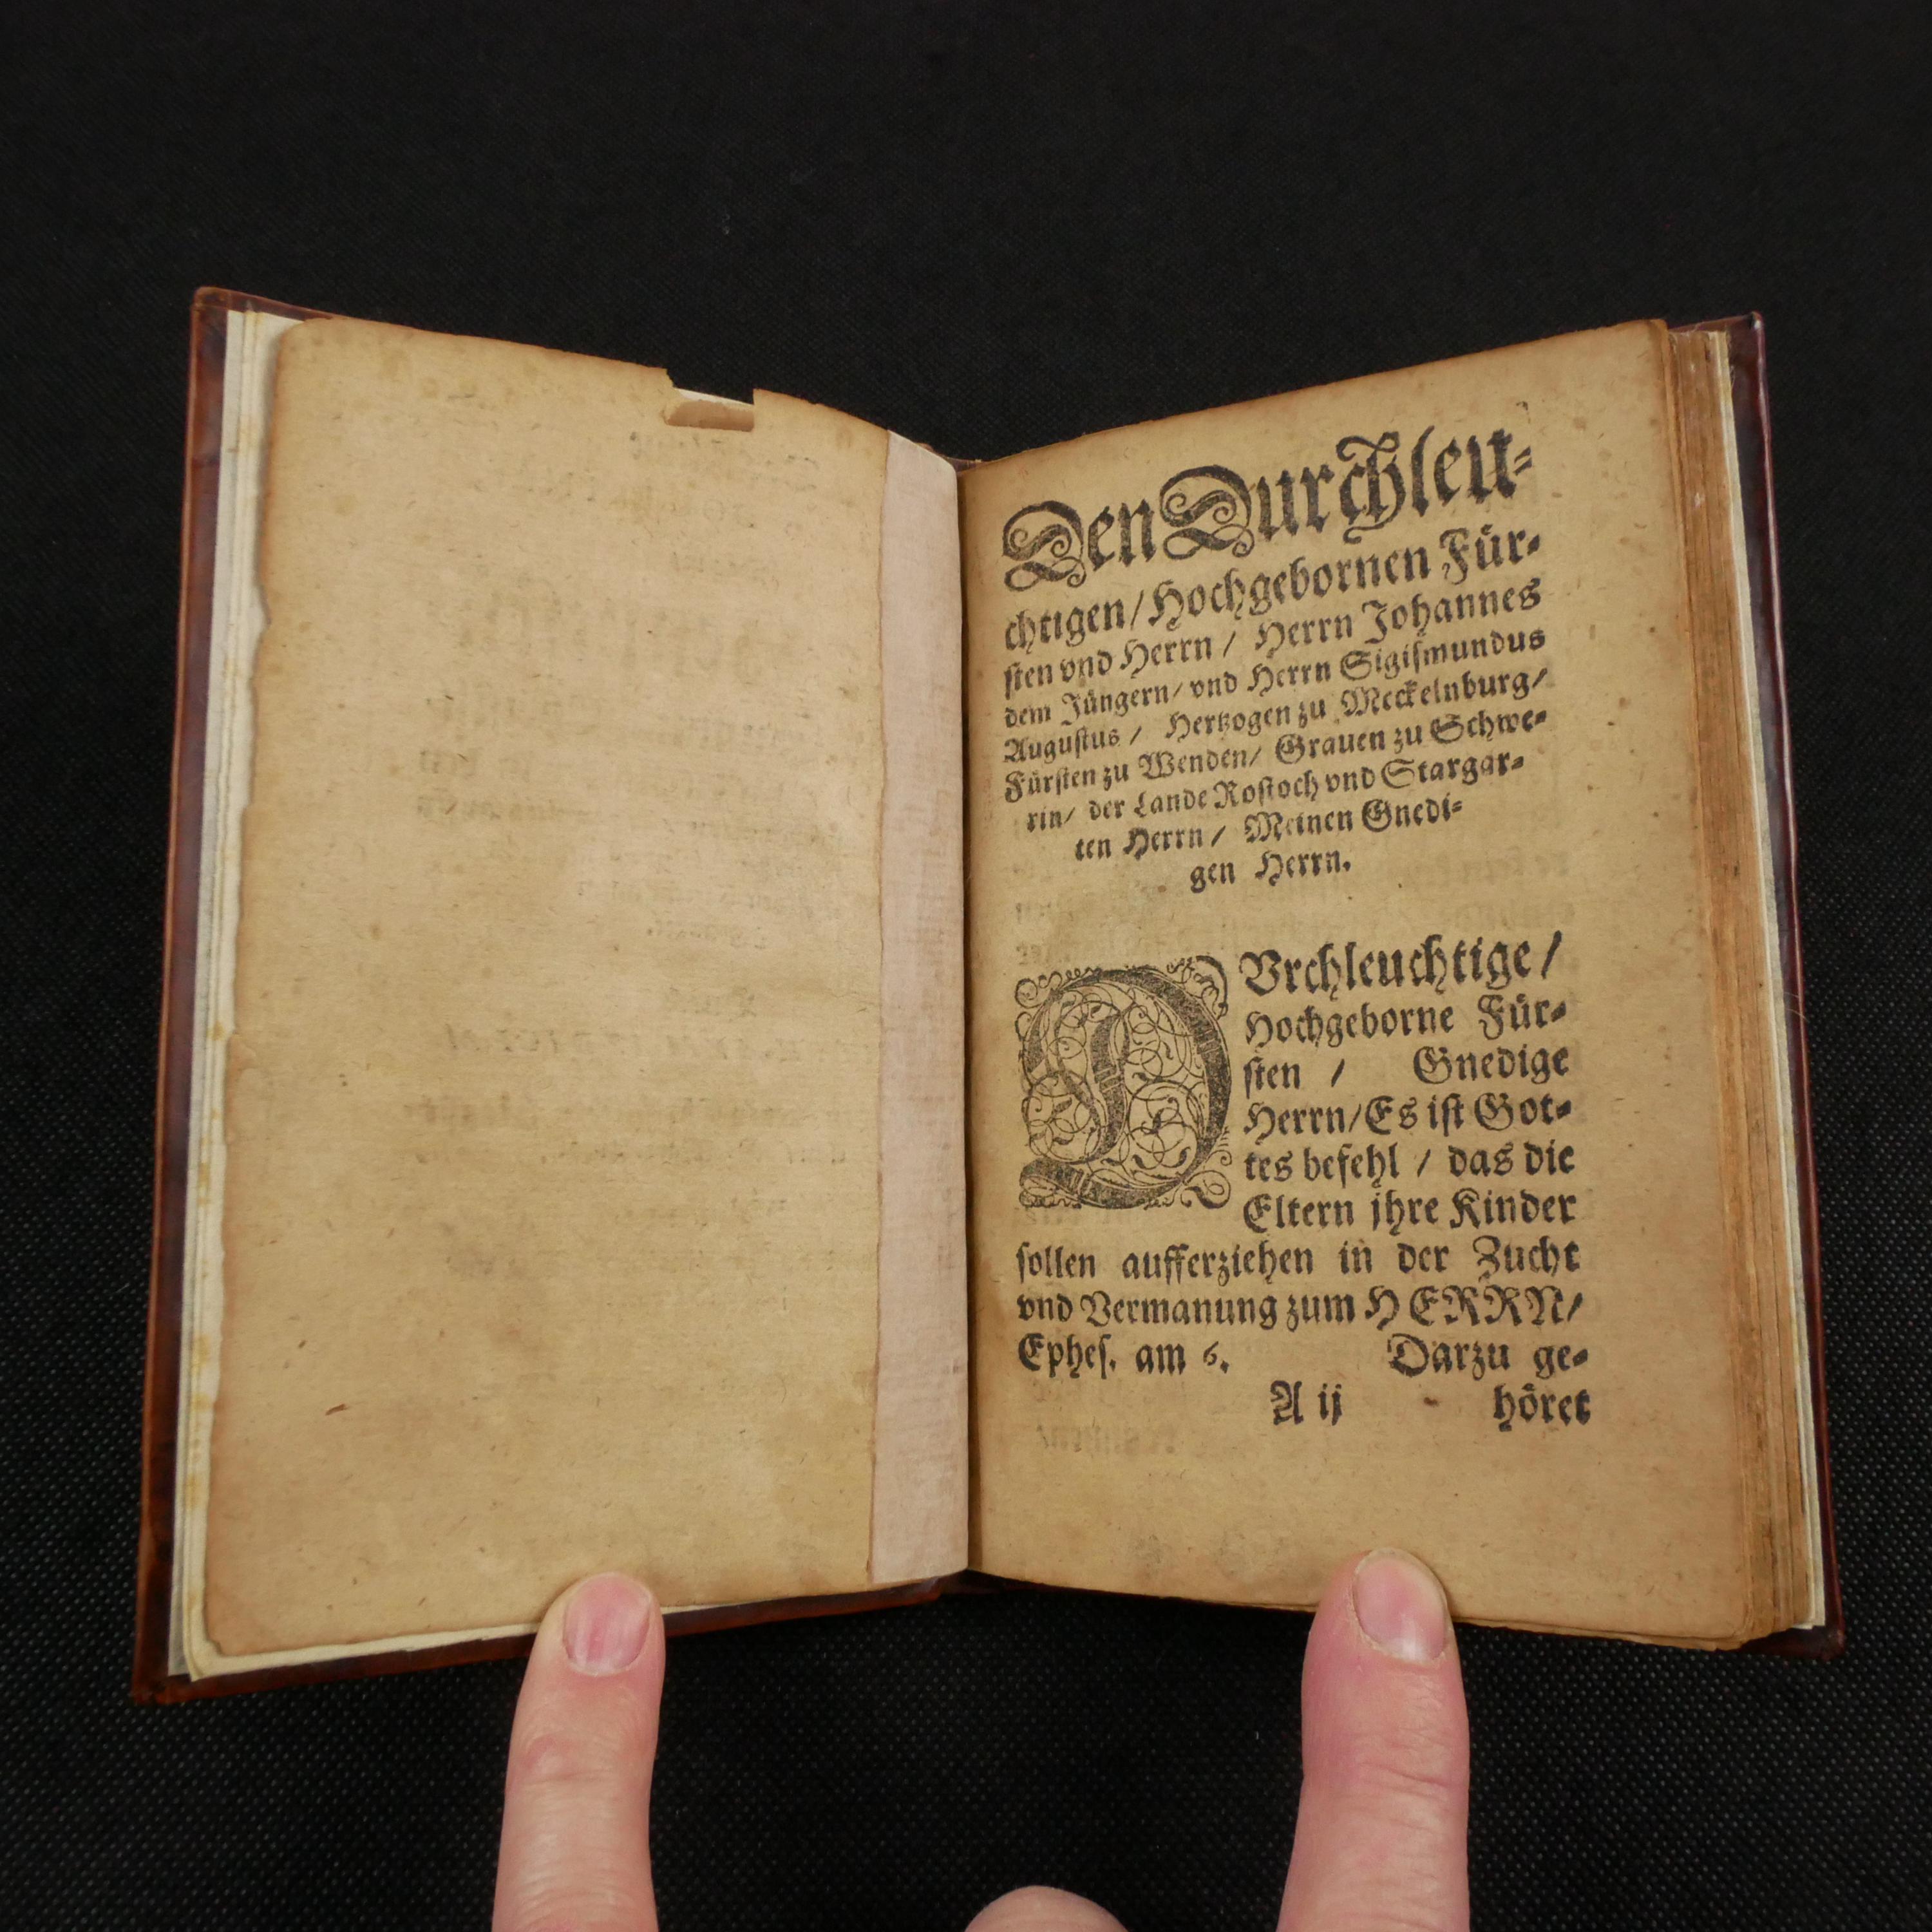 Den Durchleu-
chtigen/ Hochgebornen Für-
sten vnd Herrn/ Herrn Johannes
dem Jüngern/ vnd Herrn Sigismundus
Augustus/ Hertzogen zu Meckelnburg/
Fürsten zu Wenden/ Grauen zu Schwe-
rin/ der Lande Rostoch vnd Stargar-
ten Herrn/ Meinen Gnedi-
gen Herrn.
DVrchleuchtige/
Hochgeborne Für-
sten / Gnedige
Herrn/ Es ist Got-
tes befehl / das die
Eltern jhre Kinder
sollen aufferziehen in der Zucht
vnd Vermanung zum HERRN/
Ephes. am 6. Darzu ge-
A ij höret